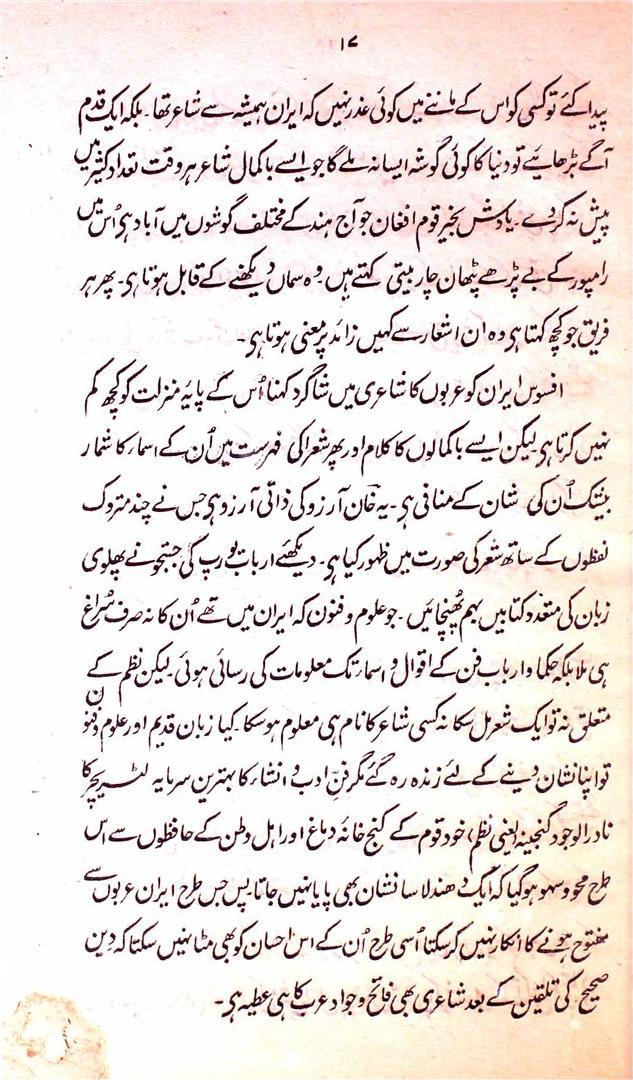 ۱۷
پیدا کئے تو کسی کو اس کے ماننے میں کوئی عذر نہیں کہ ایران ہمیشہ سے شاعر تھا۔ بلکہ ایک قدم
آگے بڑھائیے تو دنیا کا کوئی گوشہ ایسا نہ ملے گا جو ایسے باکمال شاعر ہر وقت تعداد کثیر میں
پیش نہ کردے۔ یادش بخیر قوم افغان جو آج ہند کے مختلف گوشوں میں آباد ہی اُس میں
رامپور کے بے پڑھے پٹھان چاربیتی کہتے ہیں۔ وہ سماں دیکھنے کے قابل ہوتا ہی۔ پھر ہر
فریق جو کچھ کہتا ہی وہ ان اشعار سے کہیں زائد پُرمعنی ہوتا ہی۔
افسوس ایران کو عربوں کا شاعری میں شاگرد کہنا اُس کے پایۂ منزلت کو کچھ کم
نہیں کرتا ہی لیکن ایسے باکمالوں کا کلام اور پھر شعرا کی فہرست میں اُن کے اسمار کا شمار
بیشک اُن کی شان کے منافی ہی۔ یہ خان آرزو کی ذاتی آرزو ہی جس نے چند متروک
لفظوں کے ساتھ شعر کی صورت میں ظہور کیا ہی۔ دیکھئے ارباب یورپ کی جستجو نے پہلوی
زبان کی متعدد کتابیں بہم پُھنچائیں۔ جو علوم و فنون کہ ایران میں تھے اُن کا نہ صرف سُراغ
ہی ملا بلکہ حکما و ارباب فن کے اقوال و اسمار تک معلومات کی رسائی ہوئی۔ لیکن نظم کے
متعلق نہ تو ایک شعر مل سکا نہ کسی شاعر کا نام ہی معلوم ہوسکا۔ کیا زبان قدیم اور علوم و فنون
تو اپنا نشان دینے کے لئے زندہ رہ گئے مگر فنِّ ادب و انشار کا بہترین سرمایہ لٹریچر کا
نادرالوجود گنجینہ (یعنی نظم) خود قوم کے کنج خانۂ دماغ اور اہل وطن کے حافظوں سے اس
طرح محو و سہو ہوگیا کہ ایک دھندلا سا نشان بھی پایا نہیں جاتا پس جس طرح ایران عربوں سے
مفتوح ہونے کا انکار نہیں کرسکتا اُسی طرح اُن کے اس احسان کو بھی مٹا نہیں سکتا کہ دین
صحیح کی تلقین کے بعد شاعری بھی فاتح و جواد عرب کا ہی عطیہ ہی۔